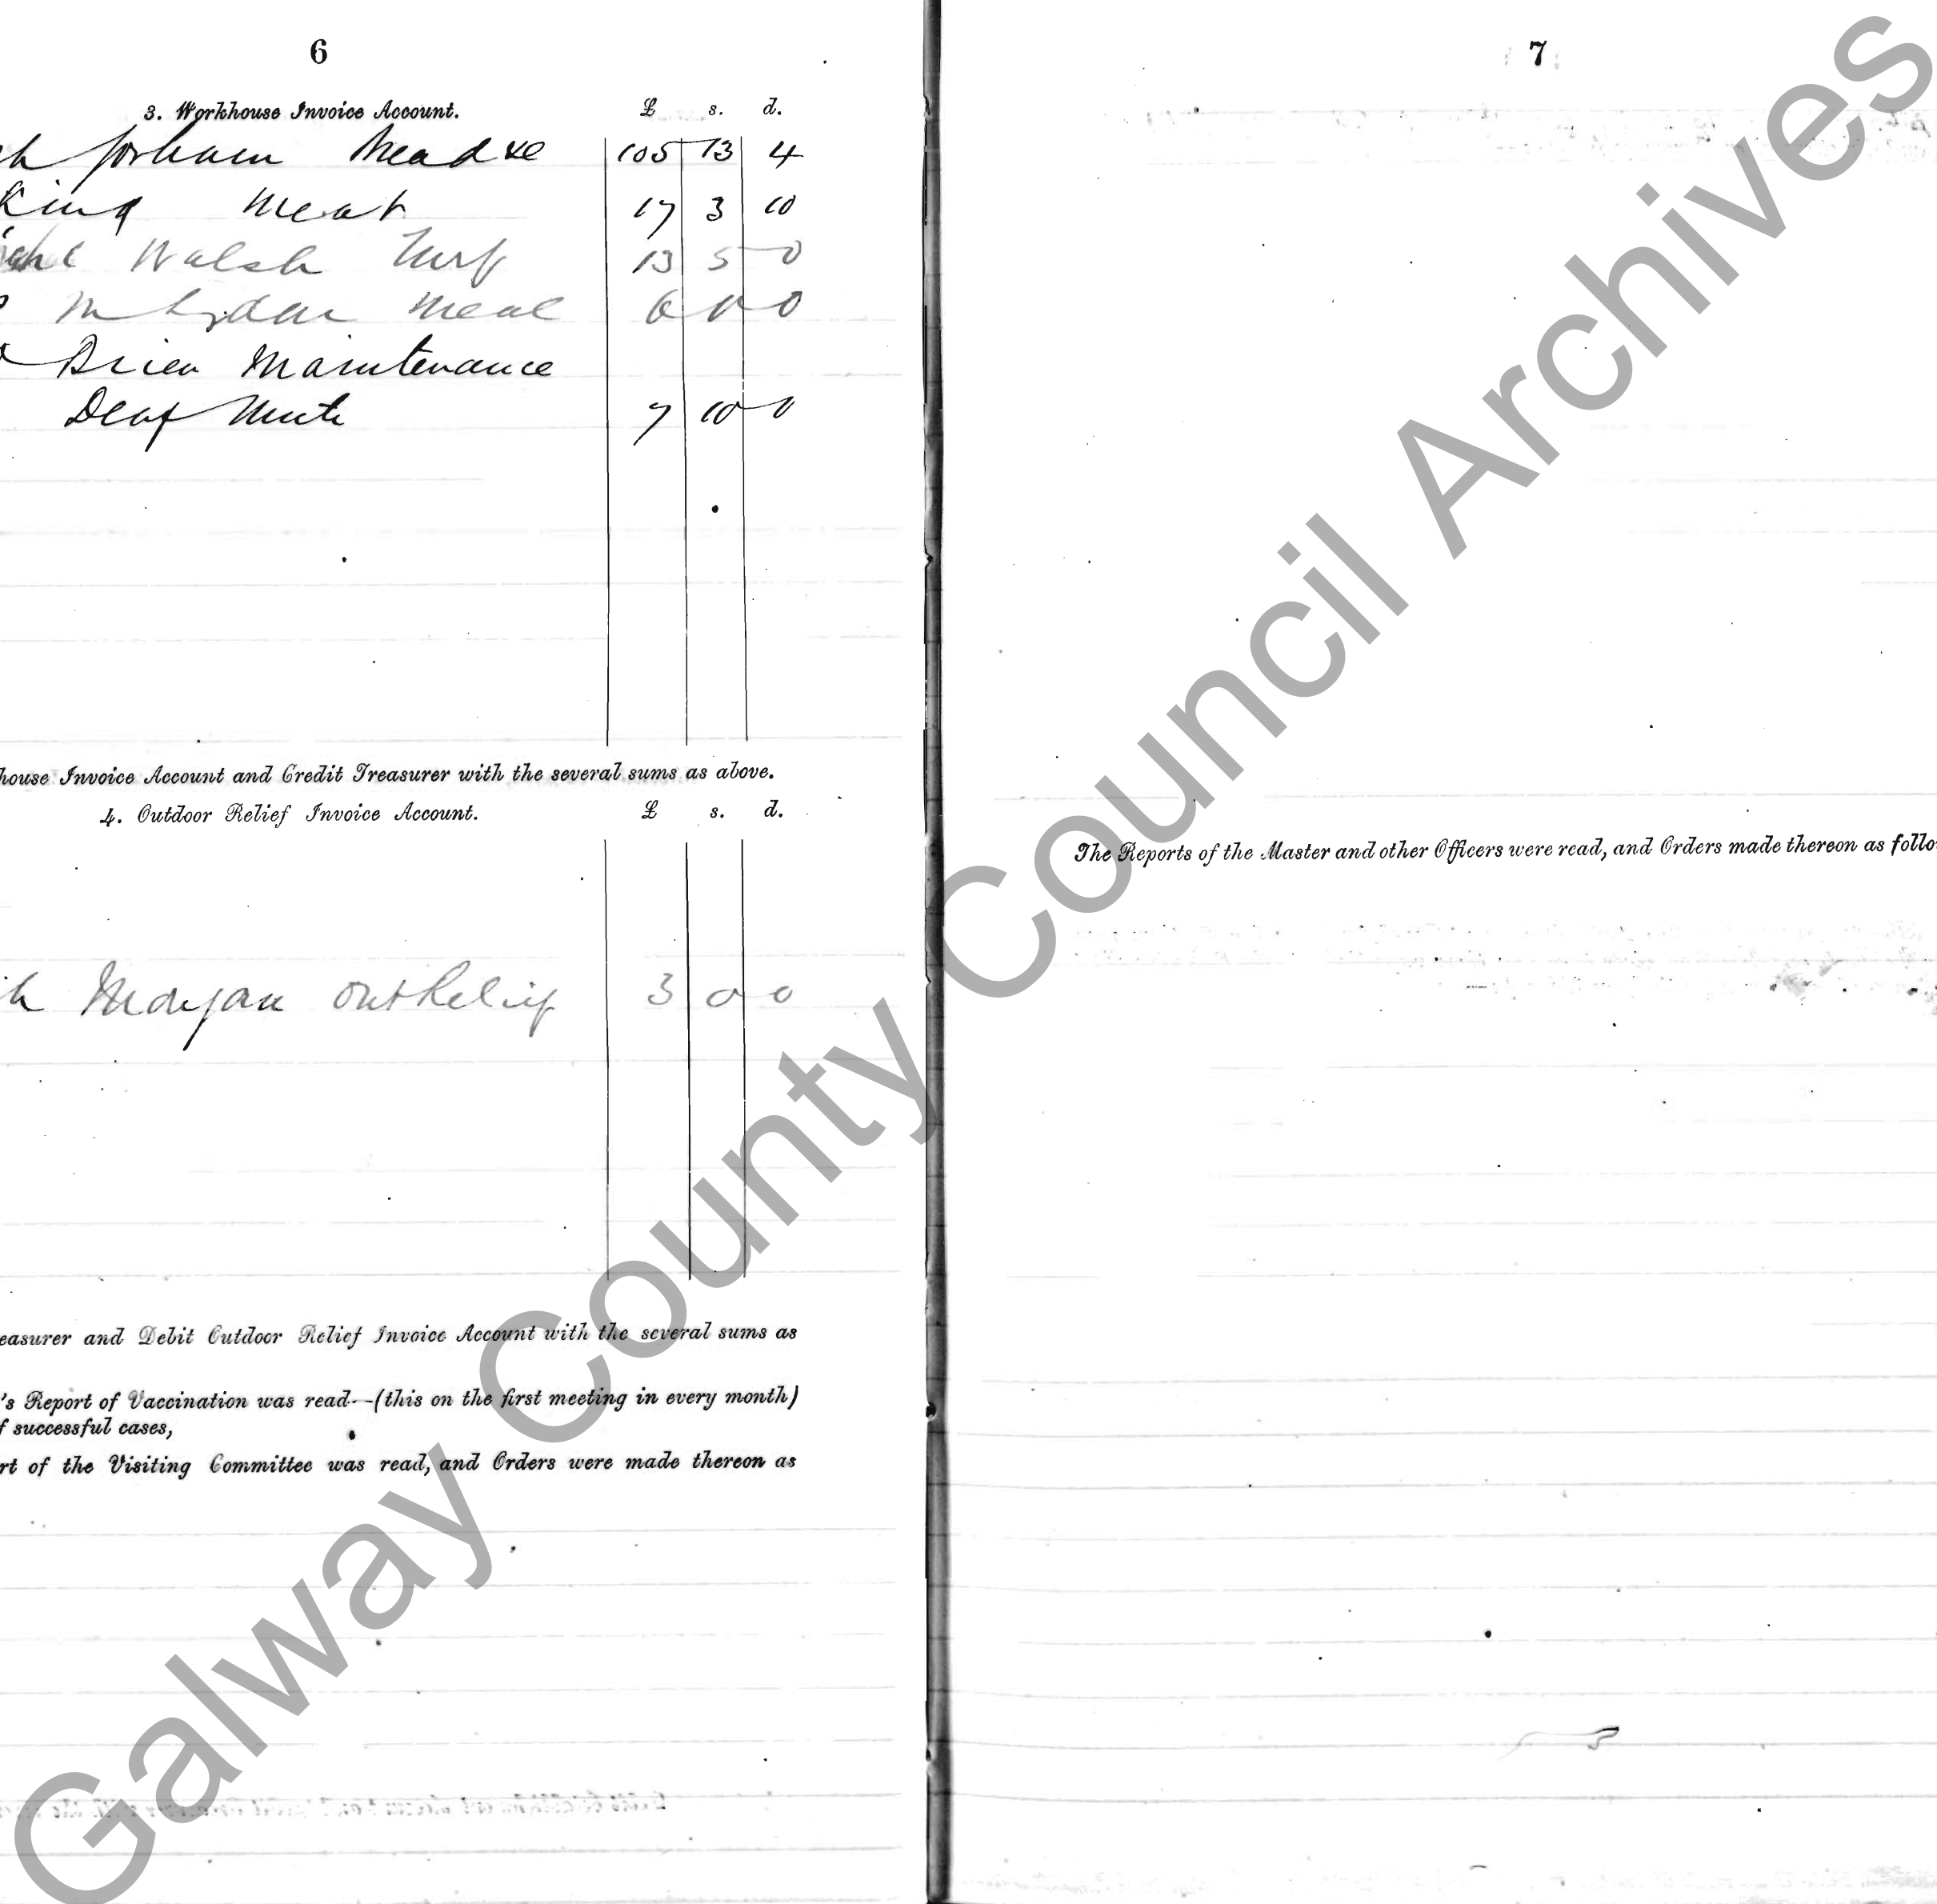 6
3. Workhouse Invoice Account. £ s. d.
105 13 4
King Meat 17 3 10
Walsh Turf 13 5 0
Meal 6 0 0
Brien Maintenance
Deaf Mute 7 10 0
house Invoice Account and Credit Treasurer with the several sums as above.
4. Outdoor Relief Invoice Account. £ s. d.
Morgan Out Relief 3 0 0
easurer and Debit Outdoor Relief Invoice Account with the several sums as
's Report of Vaccination was read—(this on the first meeting in every month)
f successful cases,
rt of the Visiting Committee was read, and Orders were made thereon as
7
The Reports of the Master and other Officers were read, and Orders made thereon as follo
Galway County Council Archives